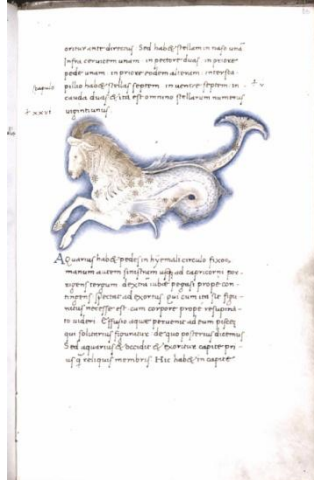 oritur ante directus. Sed habet stellam in naso unã
infra cervicem unam. in pectore duas. in priore
pede unam. in priore eodem alteram. interscapillio habet stellas septem. in ventre septem. in
cauda duas. & ita est omnino stellarum numerus
viginti unus
scapulis
+ xxxi
+ v
Aquarius habet pedes in hyemali circulo fixos.
manum autem sinistram usque ad capricorni porrigens tergum dextra iubae pegasi prope contingens spectat ad exortus. qui cum ita sit figuratus necesse est cum corpore prope resupinato videri. Effusio aquae pervenit ad eum piscem
qui solitarius figuratur de quo posterius dicemus
Sed aquarius & occidit & exoritur capite prius q̃ reliquis membris. Hic habet in capite